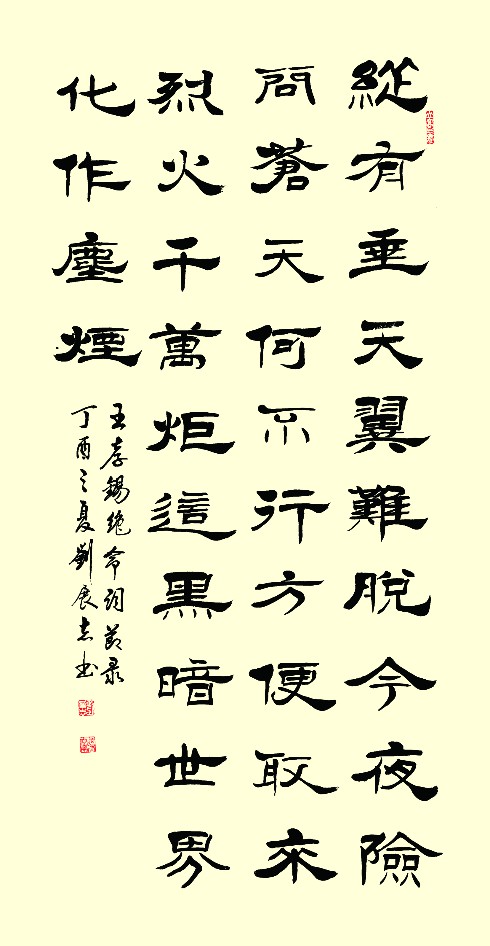 縱有垂天翼難脫今夜險
問蒼天何不行方便取來
烈火千萬炬這黑暗世界
化作塵煙
王孝錫絶命詞節录
丁酉之夏劉展志书